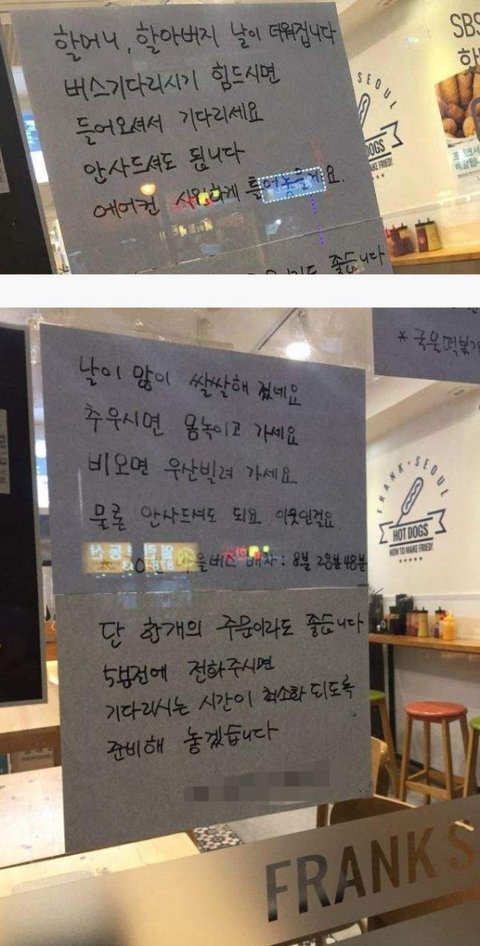 할머니, 할아버지 날이 더워집니다
버스기다리시기 힘드시면
들어오셔서 기다리세요
안사드셔도 됩니다
에어컨 시원하게 틀어놓을게요.
좋습니다
SBS
SEOUL
DOGS
MAKE FRIED!
날이 많이 쌀쌀해 졌네요
추우시면 몸녹이고 가세요
비오면 우산빌려 가세요
물론 안사드셔도 되요 이웃인걸요.
마을버스 배차: 8분 28분 48분
단 한개의 주문이라도 좋습니다
5분전에 전화주시면
기다리시는 시간이 최소화 되도록
준비해 놓겠습니다
* 국물떡볶이
FRANK SEOUL
HOT DOGS
HOW TO MAKE FRIED!
FRANK S